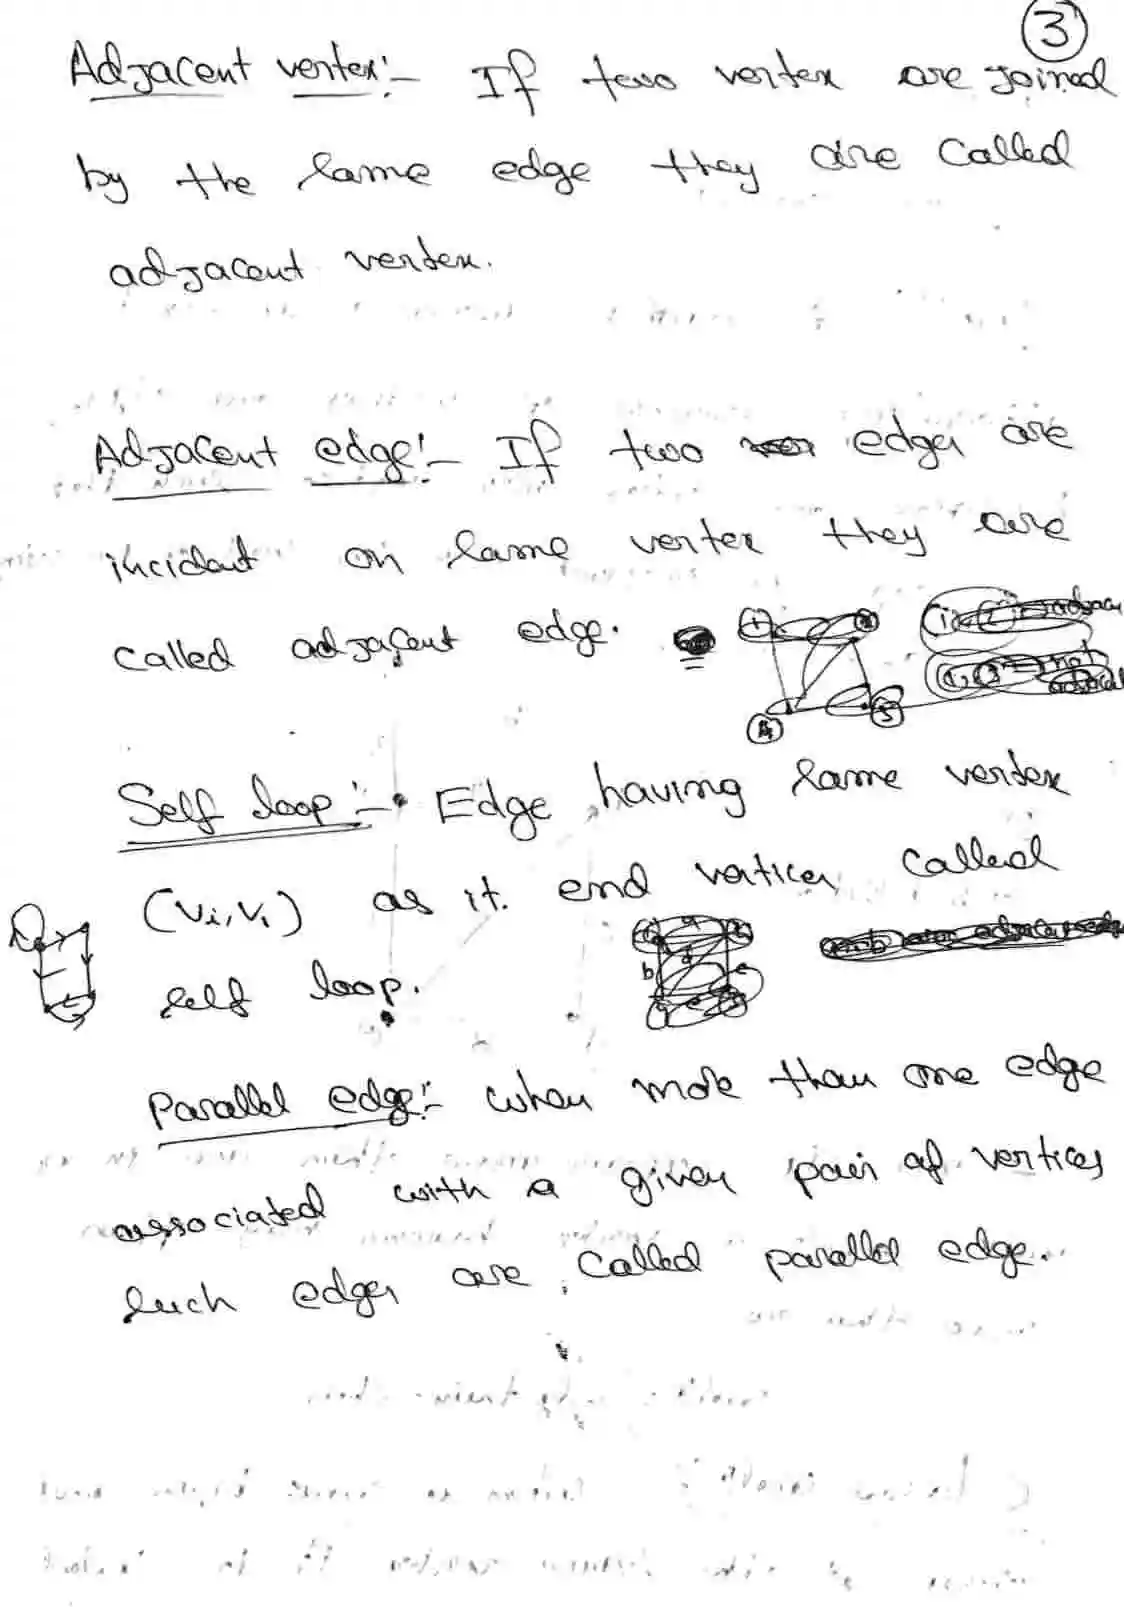 3
Adjacent vertex:- If two vertex are joined
by the same edge they are called
adjacent vertex.
Adjacent edge:- If two edges are
incident on same vertex they are
called adjacent edge.
1 2
4 3
Self loop:- Edge having same vertex
(Vi, Vi) as it. end vertices called
self loop.
b
Parallel edge:- when more than one edge
associated with a given pair of vertices
such edges are called parallel edge.